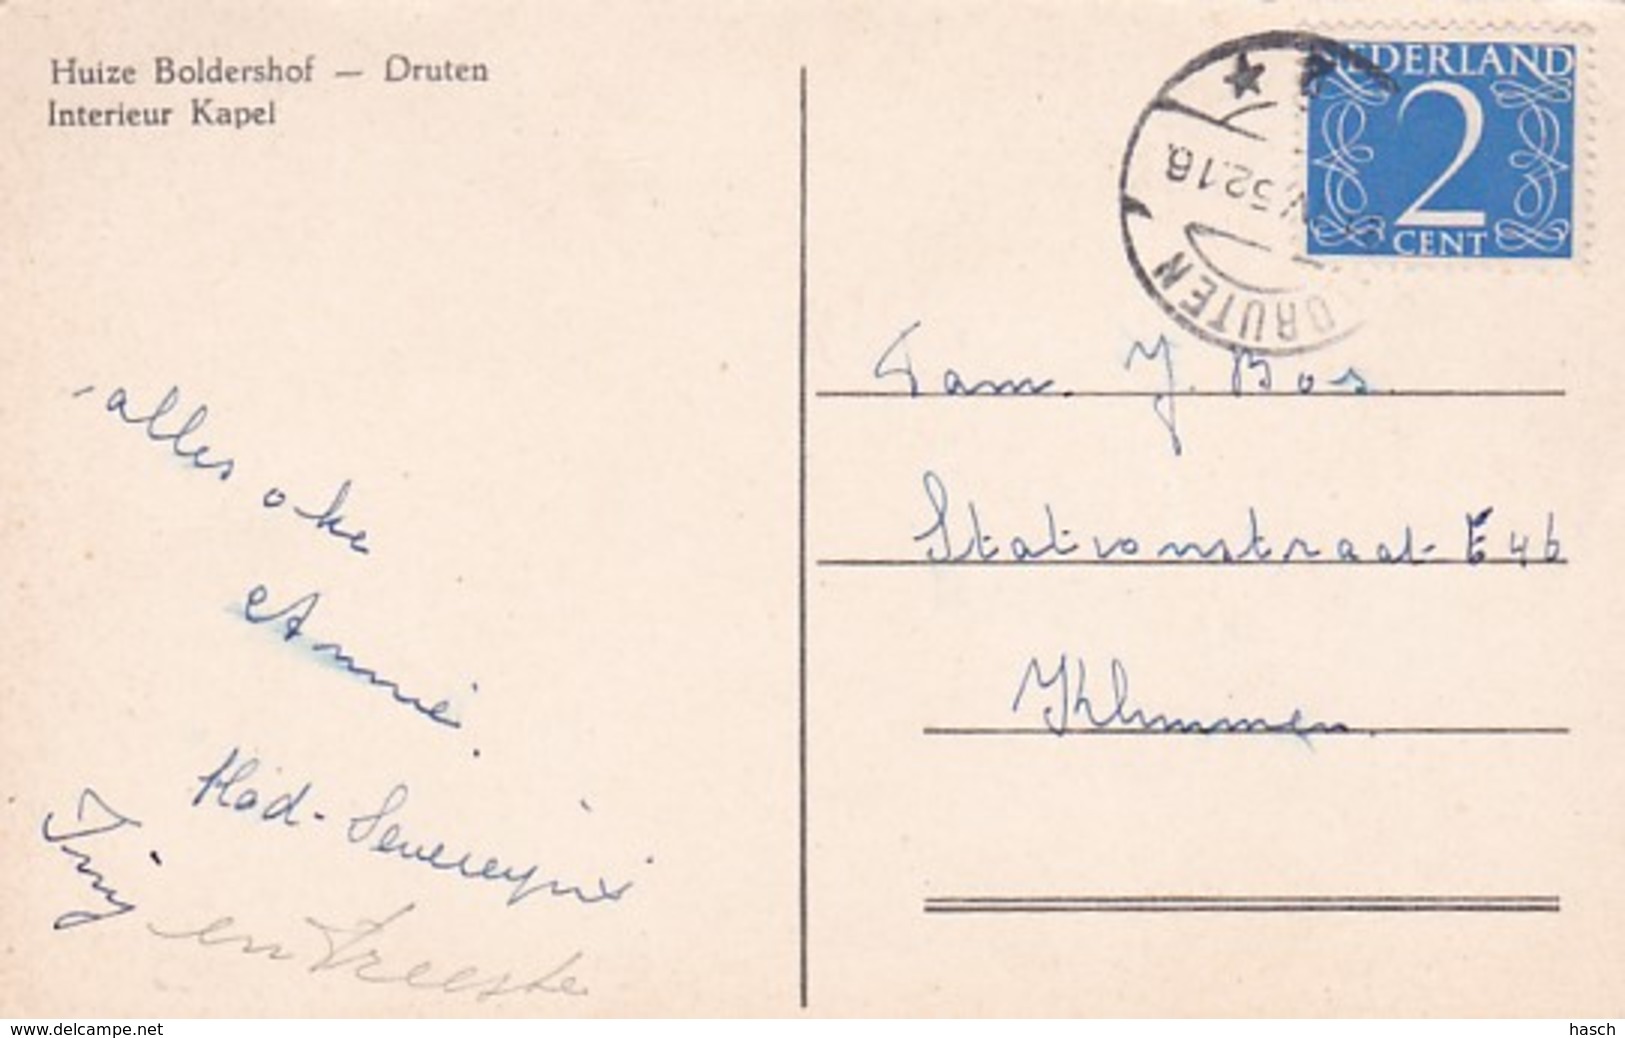 Huize Boldershof — Druten
Interieur Kapel
NEDERLAND
2
CENT
DRUTEN
52.16
Fam. J. Bos.
Stationstraat E 46
Klimmen.
alles oke
Annie.
Had-Severeyns
Tiny
en Treeske
www.delcampe.net
hasch